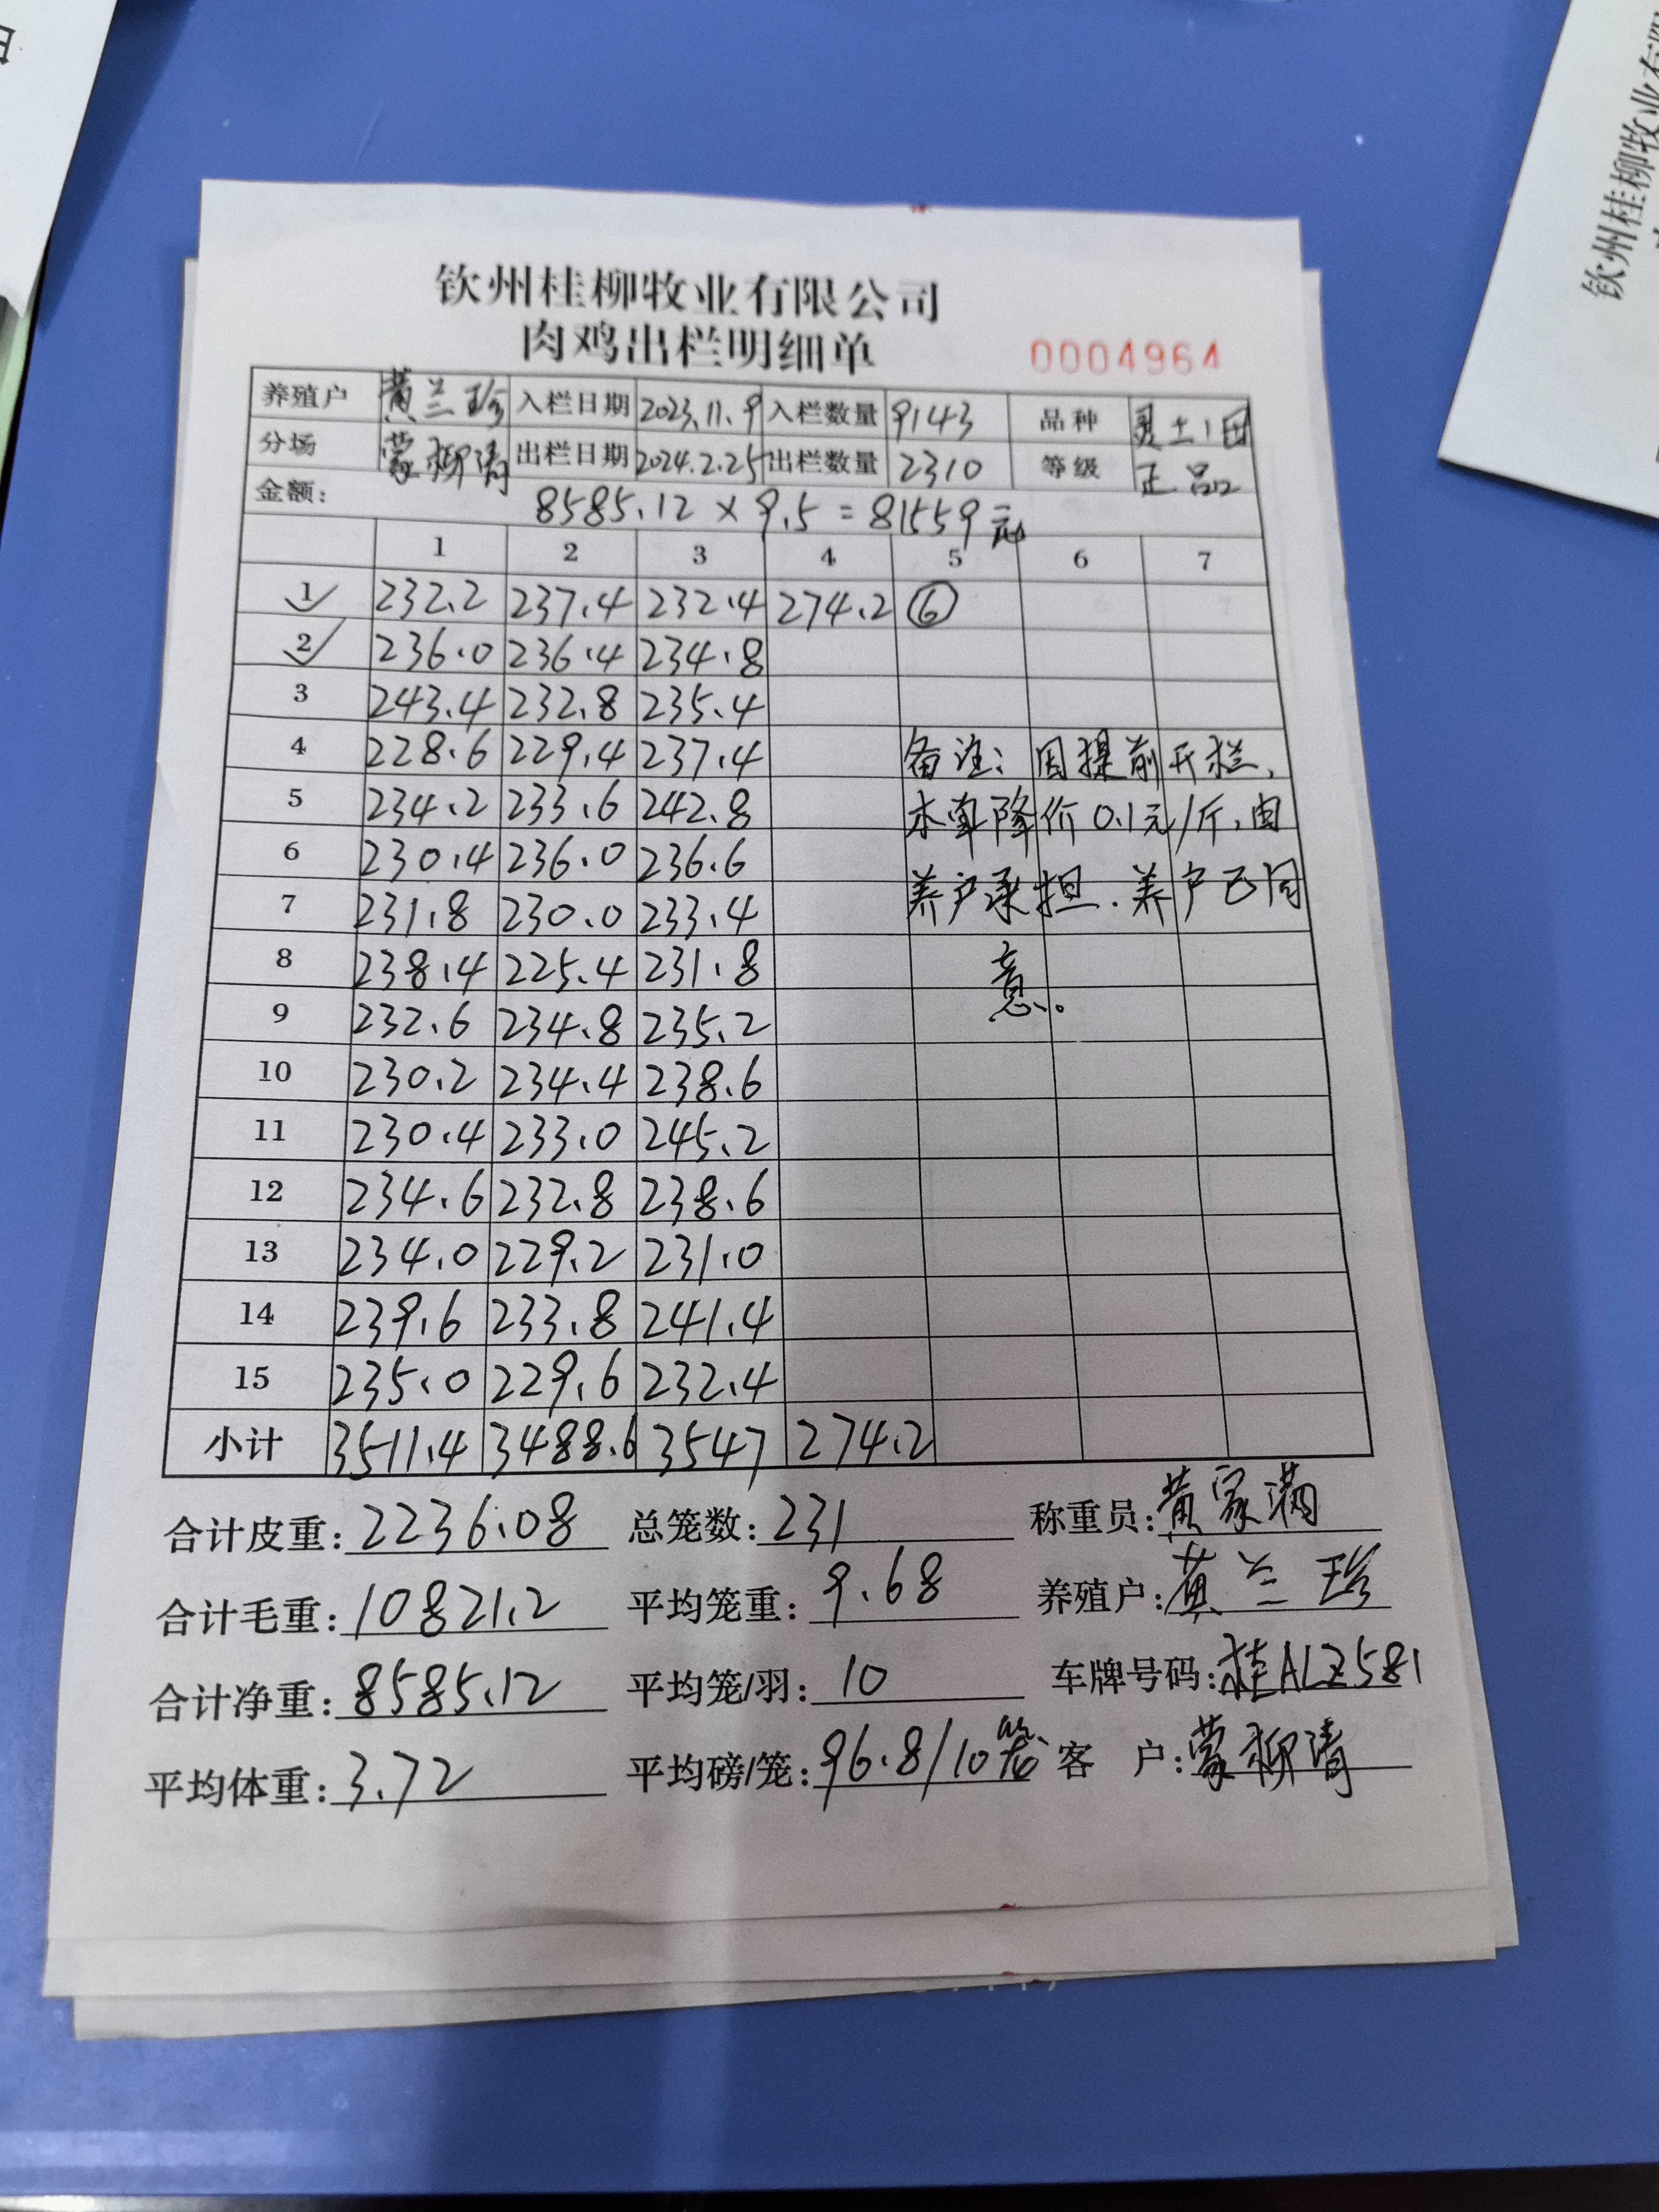 钦州桂柳牧业有限公司
肉鸡出栏明细单 0004964
养殖户 黄兰珍 入栏日期 2023.11.9 入栏数量 9143 品种 土1
分场 蒙柳清 出栏日期 2024.2.25 出栏数量 2310 等级 正品
金额: 8585.12 × 9.5 = 81559元
1 2 3 4 5 6 7
1 232.2 237.4 232.4 274.2 ⑥
2 236.0 236.4 234.8
3 243.4 232.8 235.4
4 228.6 229.4 237.4 备注:因提前开栏,
5 234.2 233.6 242.8 本车降价0.1元/斤,由
6 230.4 236.0 236.6
7 231.8 230.0 233.4 养户承担.养户已同
8 238.4 225.4 231.8 意。
9 232.6 234.8 235.2
10 230.2 234.4 238.6
11 230.4 233.0 245.2
12 234.6 232.8 238.6
13 234.0 229.2 231.0
14 239.6 233.8 241.4
15 235.0 229.6 232.4
小计 3511.4 3488.6 3547 274.2
合计皮重: 2236.08 总笼数: 231 称重员: 黄家满
合计毛重: 10821.2 平均笼重: 9.68 养殖户: 黄兰珍
合计净重: 8585.12 平均笼/羽: 10 车牌号码: 桂ALZ581
平均体重: 3.72 平均磅/笼: 96.8/10笼 客 户: 蒙柳清
钦州桂柳牧业有限